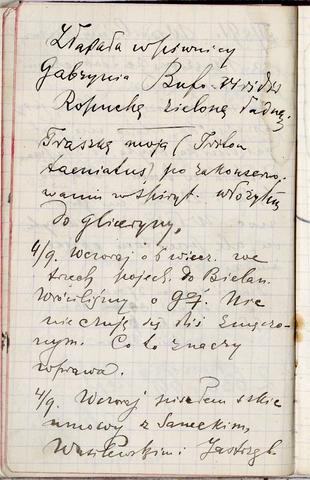 Złapała w piwnicy
Gabrynia Bufo viridis
Ropuchę zieloną ładną.
Traszkę moją (Triton
taeniatus) po zakonserwo-
waniu w spiryt. włożyłem
do gliceryny.
4/9. Wczoraj o 6 wiecz. we
trzech pojech. do Bielan.
Wróciliśmy o 9ej. Nic
nie czuję się dziś zmęczo-
nym. Co to znaczy
wprawa.
4/9. Wczoraj pisałem szkic
umowy z Saneckim,
Wasilewskim i Jastrzęb.